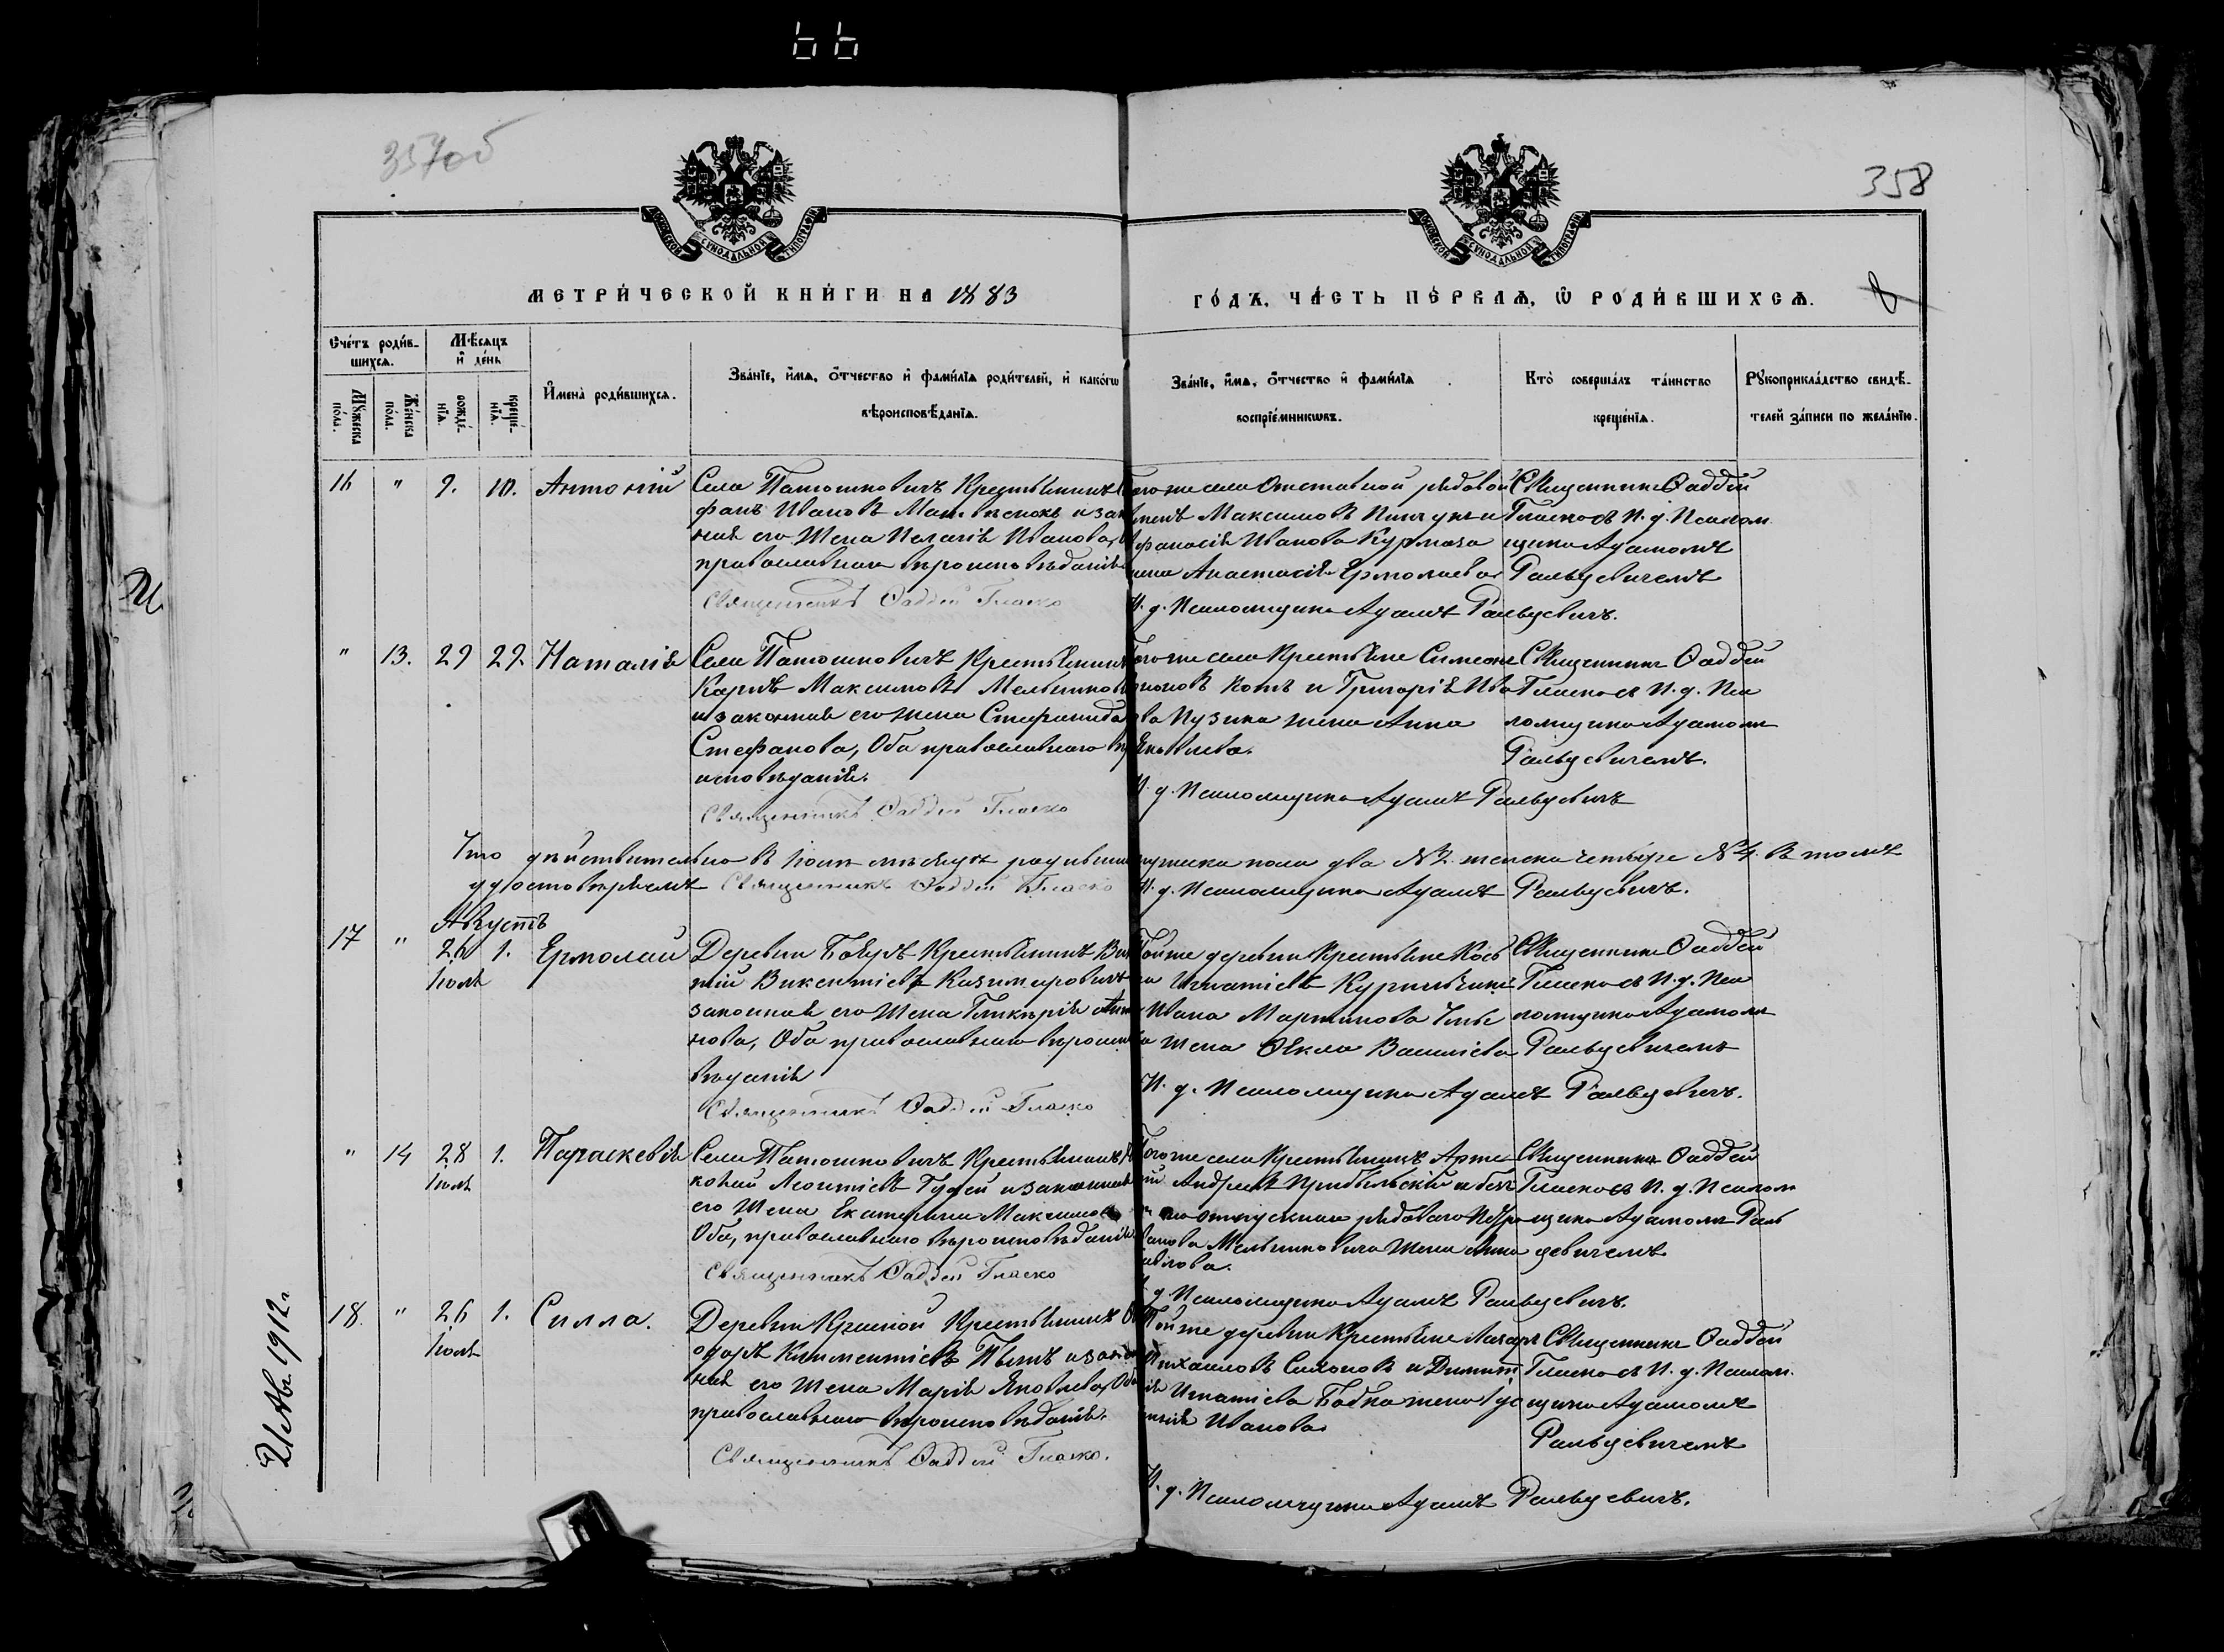 357об
358
МОСКОВСКОЙ СѴНОДАЛЬНОЙ ТИПОГРАФІИ
МОСКОВСКОЙ СѴНОДАЛЬНОЙ ТИПОГРАФІИ
МЕТРИ́ЧЕСКОЙ КНИ́ГИ НА 1883
ГО́ДЪ, ЧА́СТЬ ПЕ́РВАѦ, Ѡ҆ РОДИ́ВШИХСѦ.
8
Сче́тъ роди́в-
шихсѧ.
Мꙋ́жеска по́ла.
Же́нска по́ла.
Мѣ́сяцъ
и҆ де́нь
рожде́-
нїѧ.
креще́-
нїѧ.
И҆мена̀ роди́вшихсѧ.
Зва́нїе, и҆́мѧ, ѻ҆́тчество и҆ фами́лїѧ роди́телей, и҆ како́гѡ
вѣроисповѣ́данїѧ.
Зва́нїе, и҆́мѧ, ѻ҆́тчество и҆ фами́лїѧ
воспрїе́мникѡвъ.
Кто̀ соверша́лъ та́инство
креще́нїѧ.
Рꙋкоприкла́дство свидѣ́-
телей за́писи по жела́нїю.
16 " 9. 10. Антоній
Села Патошковичъ Крестьянинъ
фанъ Ивановъ и зак
ная его жена Пелагія Иванова,
православнаго вѣроисповѣданія
Священникъ Фаддей Гласко
тогоже села Отставной рядовой
Максимовъ и
Иванова Курмаза
жена Анастасія Ермолаева
И. д. Псаломщика Адамъ Ральцевичъ.
Священникъ Фаддей
Гласко съ И. д. Псалом
щика Адамомъ
Ральцевичемъ
" 13. 29 29. Наталія
Села Патошковичъ Крестьянинъ
Карпъ Максимовъ Мельников
и законная его жена Стефанида
Стефанова, Оба православнаго вѣ
исповѣданія.
Священникъ Фаддей Гласко
тогоже села Крестьяне Симеонъ
Котъ и Григорія Ива
ва Пузика жена Анна
Яковлева.
И. д. Псаломщика Адамъ Ральцевичъ
Священникъ Фаддей
Гласко съ И. д. Пса
ломщика Адамомъ
Ральцевичемъ.
Что дѣйствительно въ Іюлѣ мѣсяцѣ родивши мужеска пола два №2. женска четыре №4. въ томъ
удостовѣряемъ Священникъ Фаддей Гласко И. д. Псаломщика Адамъ Ральцевичъ.
Августъ
17 " 26 1. Ермолай
Іюля
Деревни Бояръ Крестьянинъ Ви
тій Викентіевъ Казимировичъ
законная его жена Гликерія Анто
нова, Оба православнаго вѣроиспо
вѣданія
Священникъ Фаддей Гласко
Тойже деревни Крестьяне
Игнатіевъ
Ивана Мартинова
жена Ѳекла Василіева
И. д. Псаломщика Адамъ Ральцевичъ.
Священникъ Фаддей
Гласко съ И. д. Пса
ломщика Адамомъ
Ральцевичемъ
" 14 28 1. Параскевія
Іюля
Села Патошковичъ Крестьянинъ
Леонтіевъ Гудей и законная
его жена Екатерина Максимова
Оба, православнаго вѣроисповѣданія
Священникъ Фаддей Гласко
Тогоже села Крестьянинъ Арте
ій Андреевъ Прибыльскій и
отпускнаго рядоваго
Мельниковича жена Анна
Павлова.
И. д. Псаломщика Адамъ Ральцевичъ.
Священникъ Фаддей
Гласко съ И. д. Псалом
щика Адамомъ Раль
цевичемъ
18. " 26 1. Силла.
Іюля
Деревни Красной Крестьянинъ Ѳе
одоръ Климентіевъ и закон
ная его жена Марія Яковлева, Оба
православнаго вѣроисповѣданія.
Священникъ Фаддей Гласко.
Тойже деревни Крестьяне Лазарь
Михаиловъ и Димит
ія Игнатіева Бабка жена
Иванова
И. д. Псаломщика Адамъ Ральцевичъ.
Священникъ Фаддей
Гласко съ И. д. Псалом.
щика Адамомъ
Ральцевичемъ
21 Авг. 1912 г.